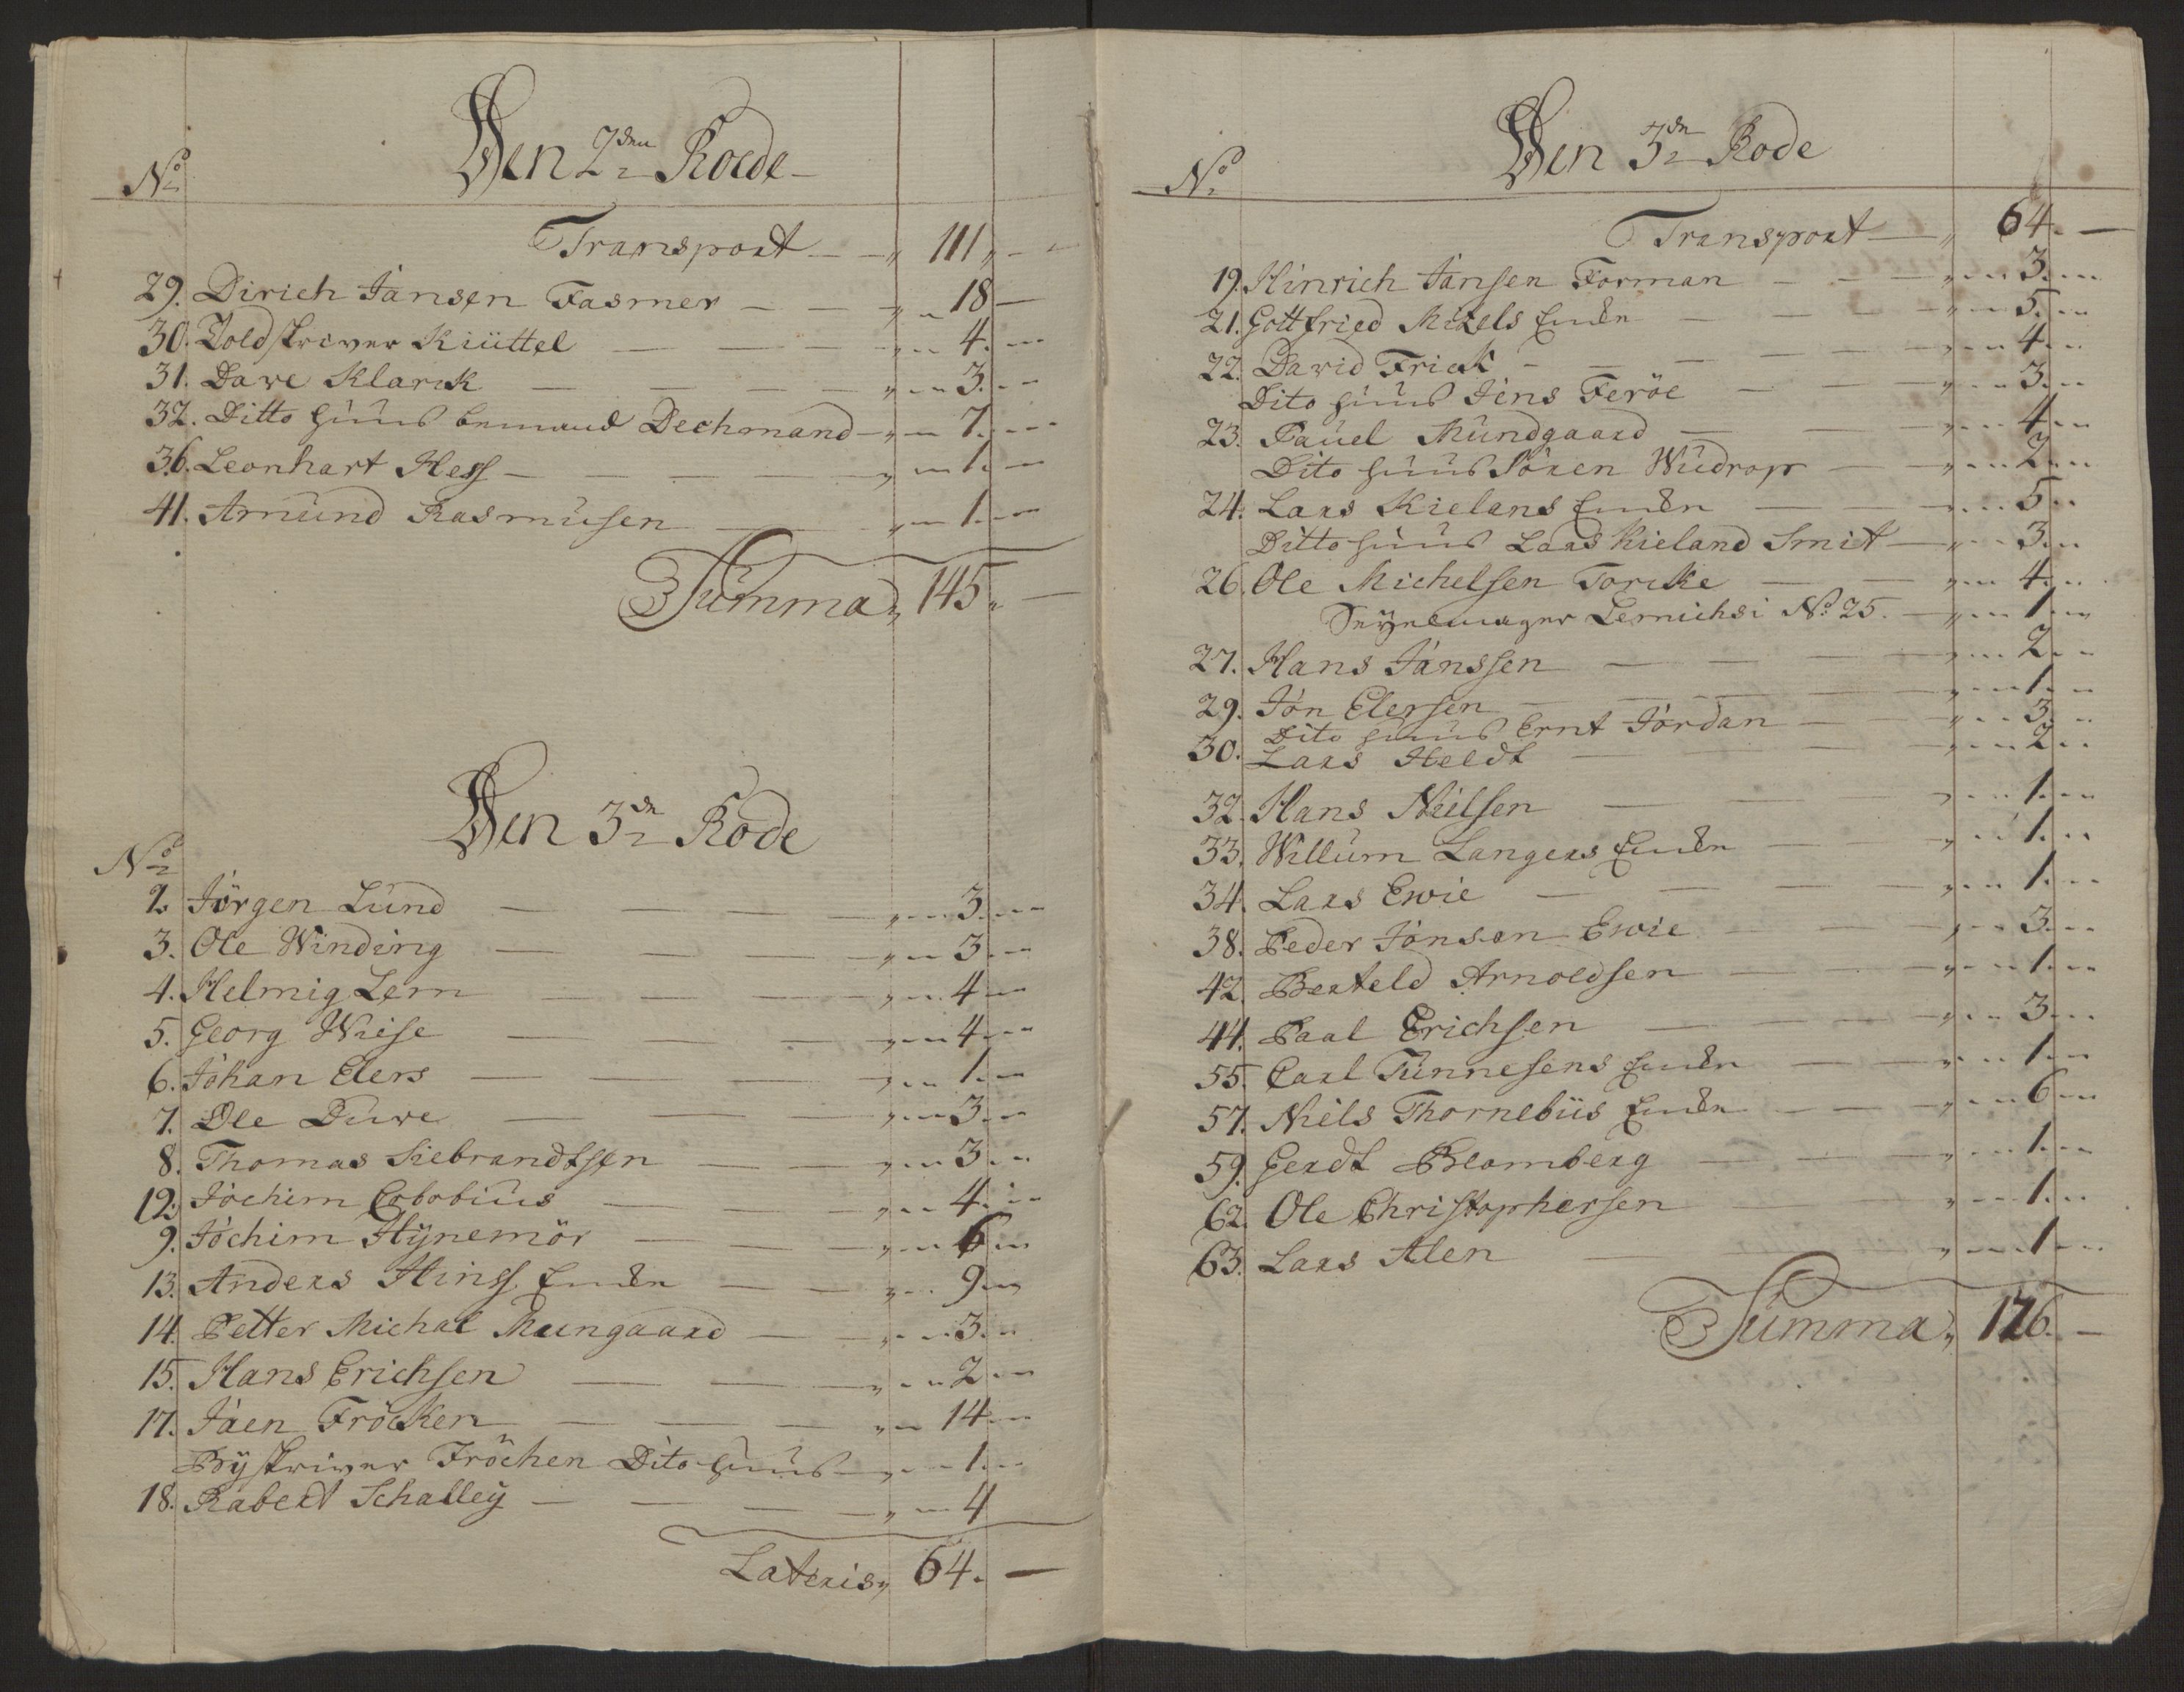 Den 2den Rode
No
Transport 111
29. Dirich Jansen Fasmer 18
30. Toldskriver Küttel 4.
31. Dave Klarck 3.
32. Ditto Huus Dechmand 7.
36. Leonhart Hess 1.
41. Amund Rasmusen 1.
Summa 145
Den 3de Rode
No
2. Jörgen Lund 3.
3. Ole Winding 3.
4. Helmig Lem 4
5. Georg Wiese 4
6. Johan Elers 1.
7. Ole Duwe 3.
8. Thomas Siebrandtsen 3
12. Jochim Cobobius 4.
9. Jochim Hÿnemör 6
13. Anders Hinss Enche 9
14. Petter Michal Mungaard 3.
15. Hans Erichsen 2
17. Jaen Fröcken 14
Bÿskriver Fröchen Dito Huus 1.
18. Rabert Schalleÿ 4
Lateris 64.
Den 3de Rode
No
Transport 64.
19. Hinrich Jansen Forman 3.
21. Gottfried Mizels Enche 5.
22. David Frick 4
Dito Huus Jens Feröe 3.
23. Pauel Mundgaard 4
Dito Huus Sören Wudrop 2
24. Lars Kielans Enche 5
Ditto Huus Lars Kieland Smit 3.
26. Ole Michelsen Torcke 4.
Seÿelmager Lemichsi No 25. 1.
27. Hans Janssen 2
29. Jon Elersen 1.
Dito Huus Ernt Jordan 3.
30. Lars Heldt 2
32. Hans Nielsen 1.
33. Willum Langers Enche 1.
34. Lars Ewie 1.
38. Peder Jonsen Ewie 3.
42. Berteld Arnoldsen 1.
44. Paal Erichsen 3
55. Carl Tünnesens Enche 1.
57. Niels Thornebüs Enche 6
59. Gerdt Blomberg 1.
62. Ole Christophersen 1.
63. Lars Alen 1
Summa 126.